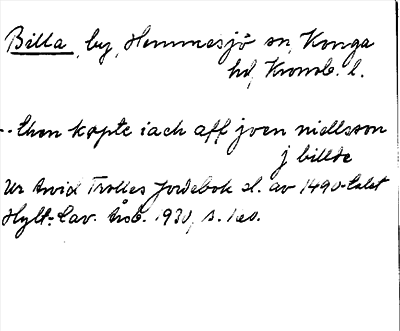 Billa, by, Hemmesjö sn, Konga
hd, Kronob. l.
-- then køpte iach aff joen niellsson
j billde
Ur Arvid Trolles Jordebok sl. av 1490-talet
Hylt.-Cav. Årsb. 1930, s.